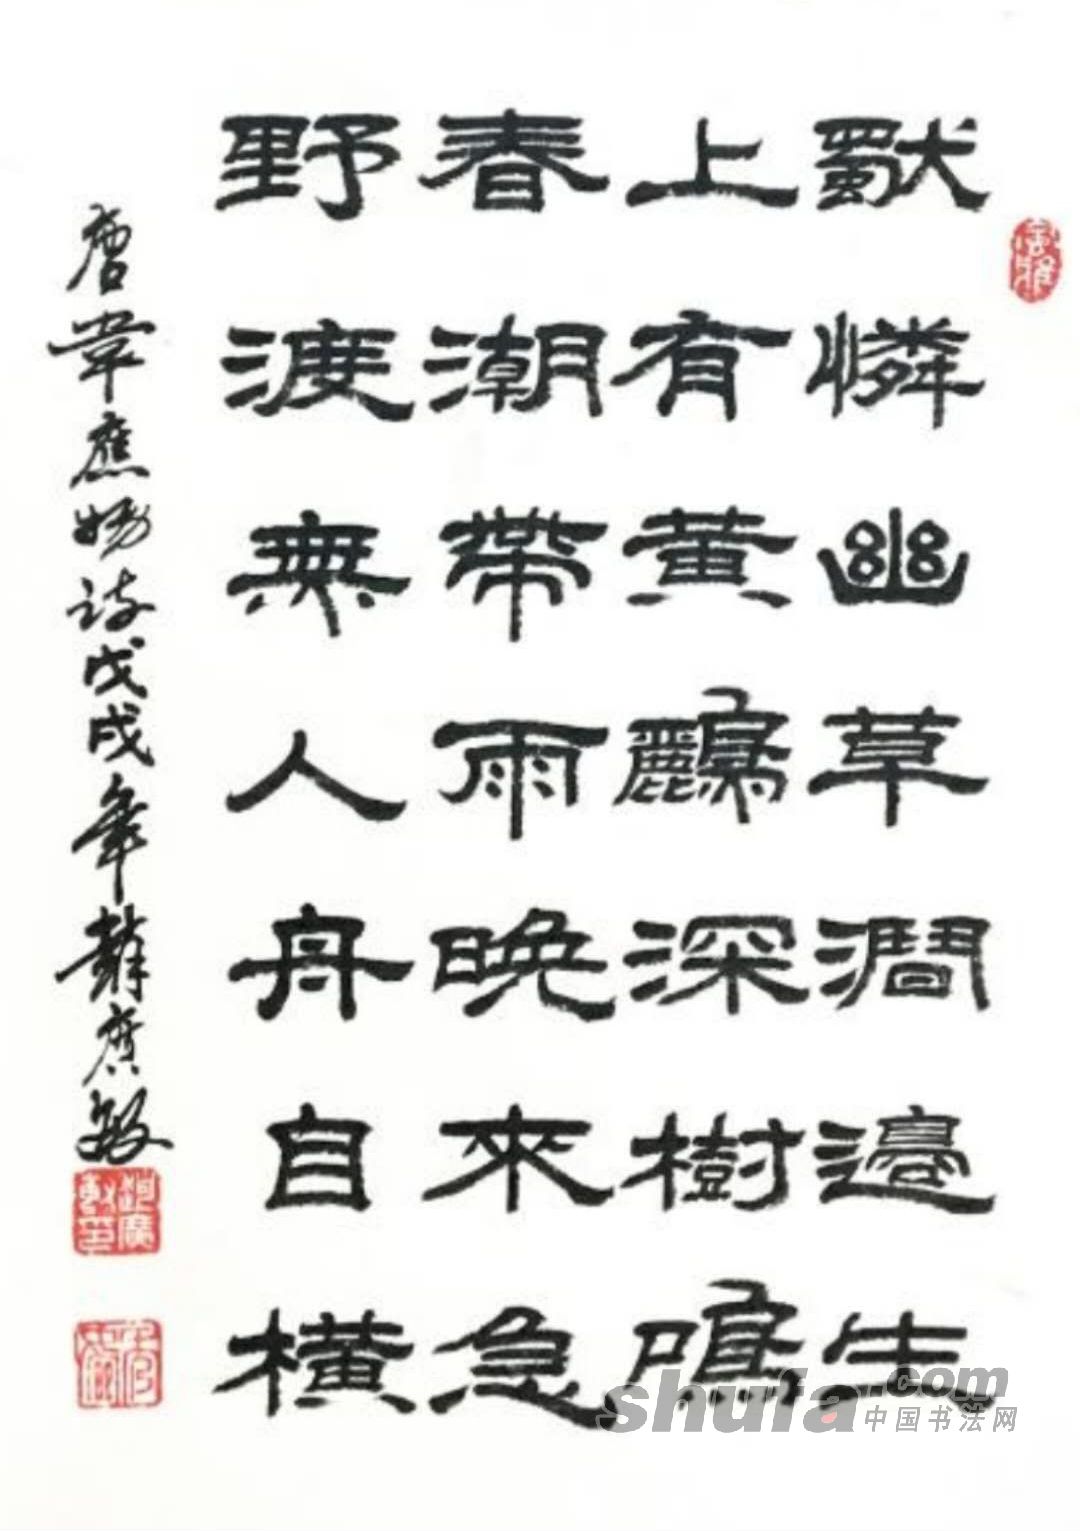 獨憐幽草澗邊生
上有黃鸝深樹鳴
春潮帶雨晚來急
野渡無人舟自橫
唐韋應物詩戊戌年
shufa.com
中国书法网